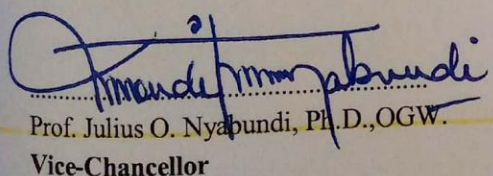 Prof. Julius O. Nyabundi, Ph.D.,OGW.
Vice-Chancellor